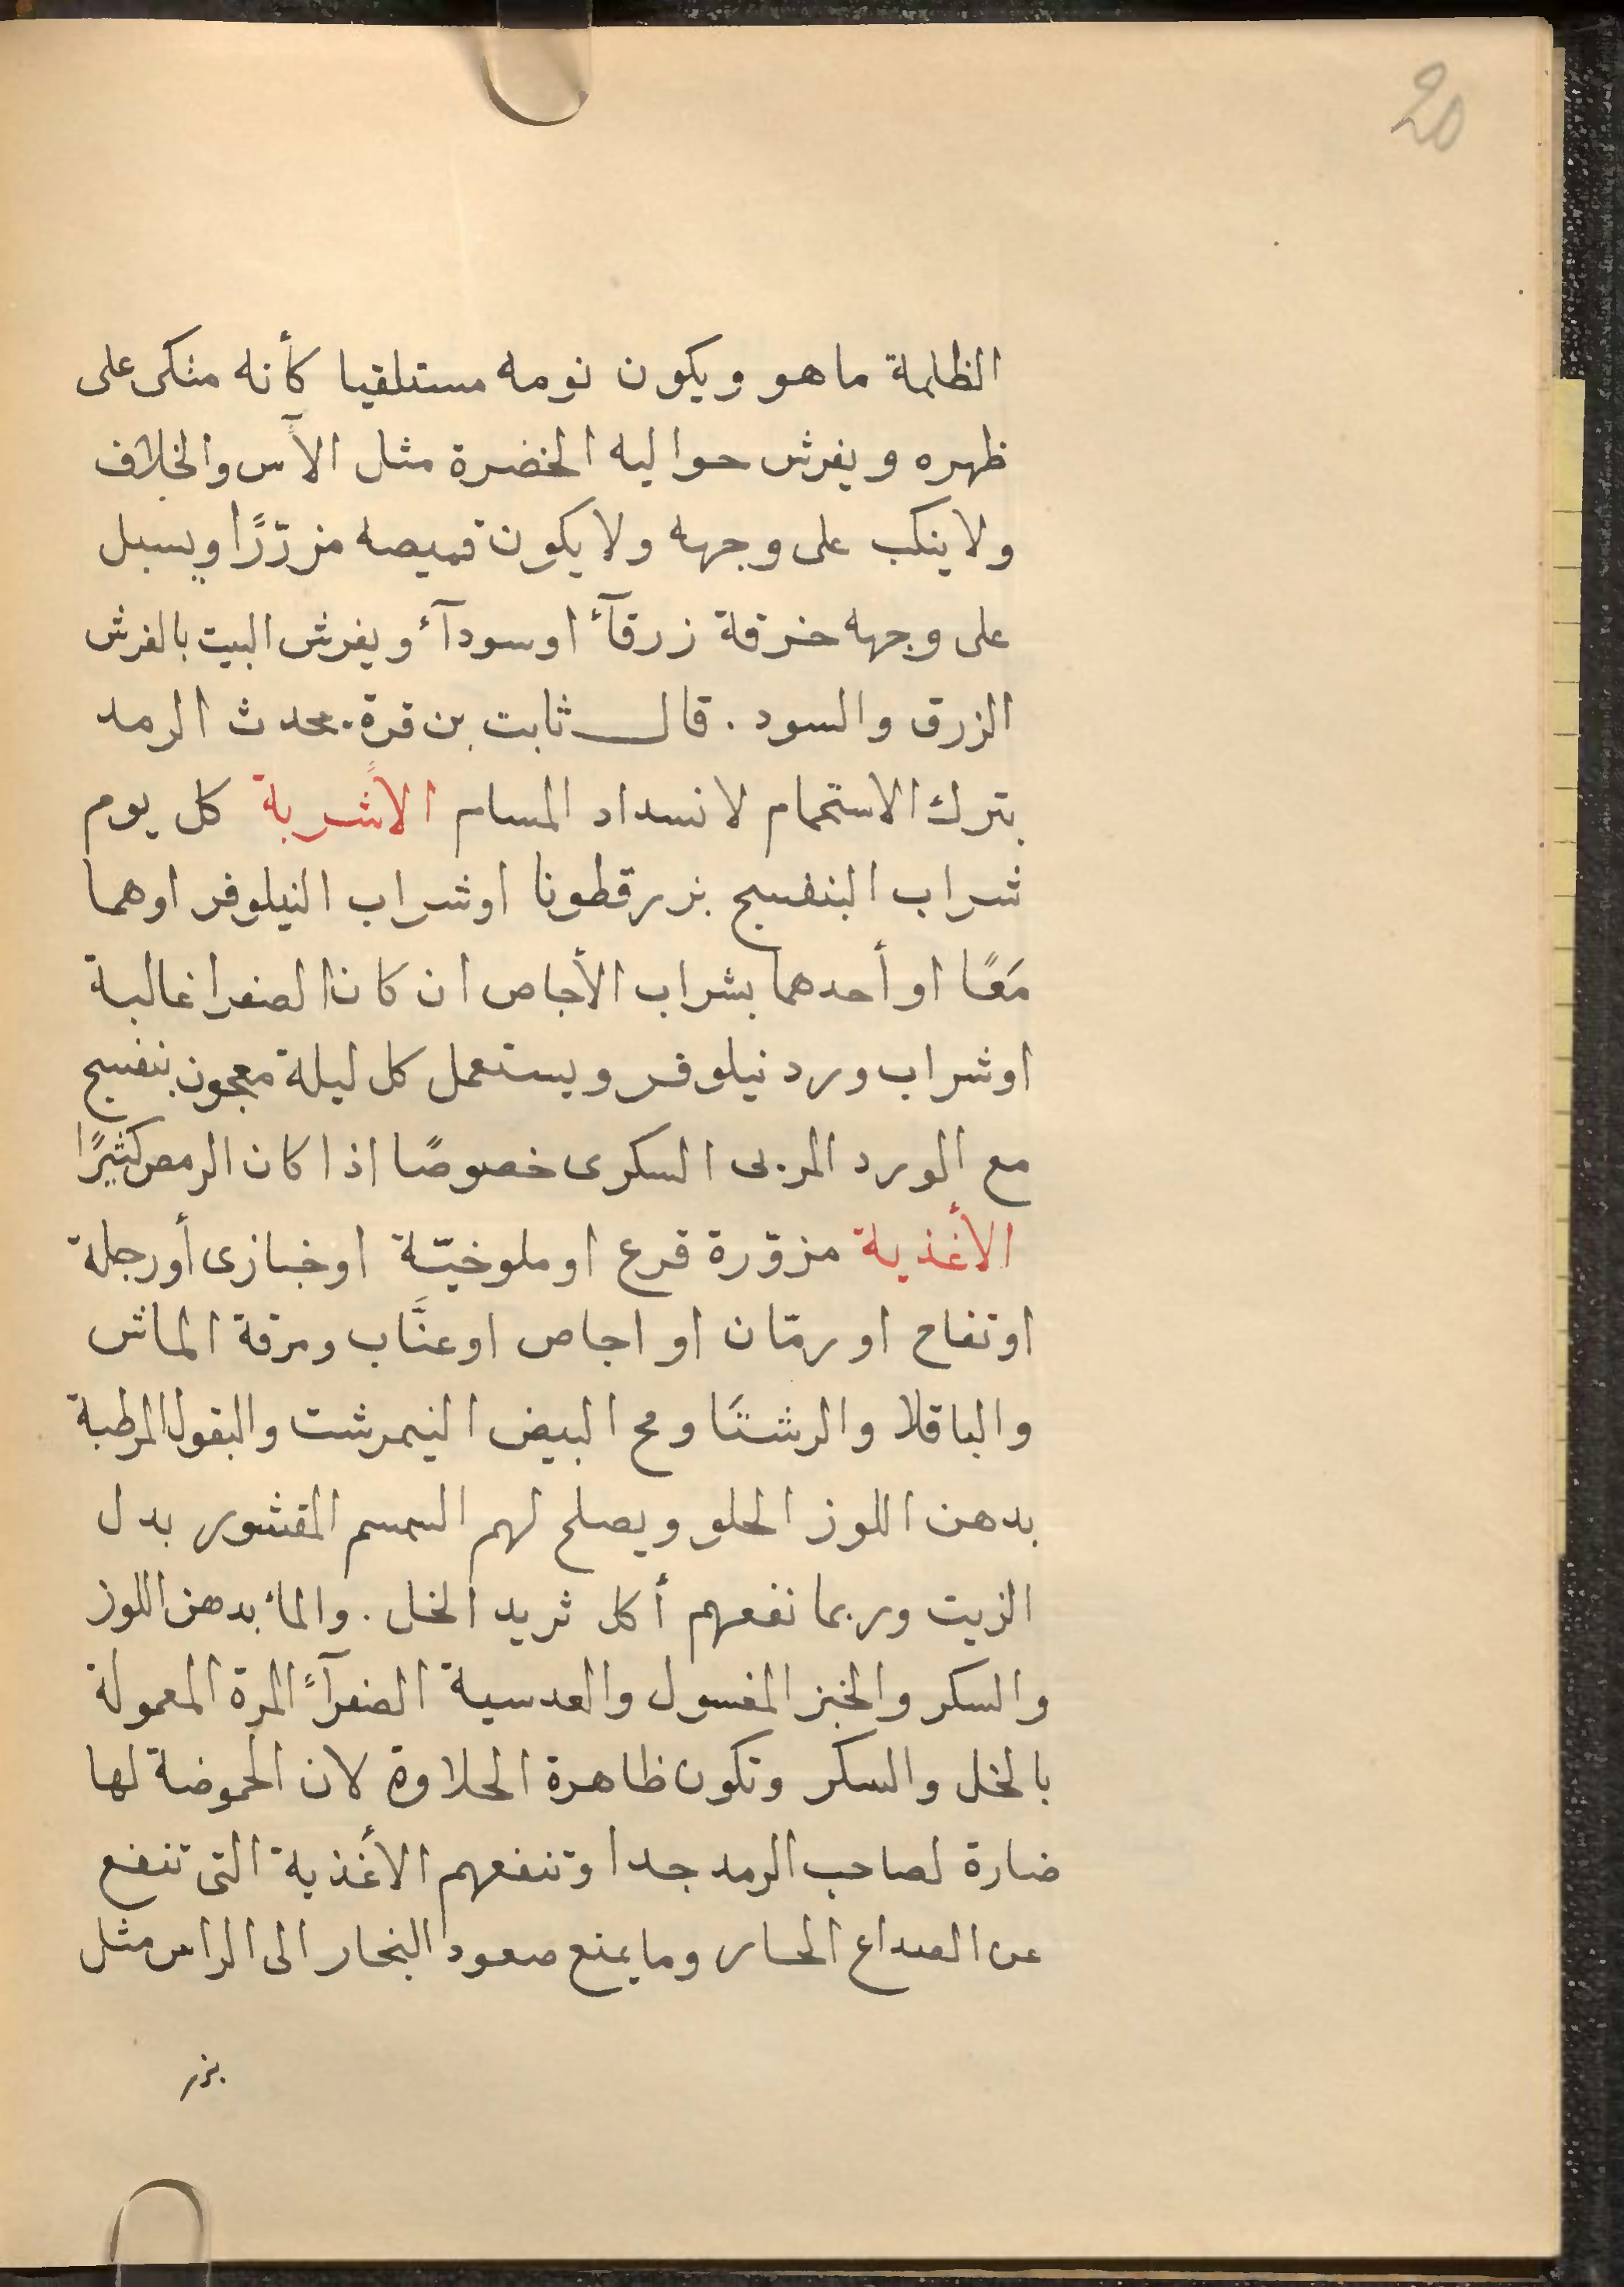 20
الظلمة ماهو ويكون نومه مستلقيا كأنه متكى على
ظهره ويفرش حواليه الخضرة مثل الآس والخلاف
ولا ينكب على وجهه ولا يكون قميصه مزرّرًا ويسبل
على وجهه خرقة زرقآء او سودآء ويفرش البيت بالفرش
الزرق والسود . قال ثابت بن قرة . يحدث الرمد
بترك الاستحمام لانسداد المسام الاشربة كل يوم
شراب البنفسج بزرقطونا او شراب النيلوفر او هما
مَعًا او أحدهما بشراب الأجاص ان كان الصفرا غالبة
او شراب ورد نيلوفر ويستعمل كل ليلة معجون بنفسج
مع الورد المربى السكرى خصوصًا اذا كان الرمص كثيرًا
الأغذية مزوّرة قرع او ملوخيّة او خبازى أو رجلة
او تفاح او رمّان او اجاص او عنَّاب ومرقة الماش
والباقلا والرشتَا ومح البيض النيمرشت والبقول المرطبة
بدهن اللوز الحلو ويصلح لهم السمسم المقشور بدل
الزيت وربما نفعهم أكل ثريد الخل . والماء بدهن اللوز
والسكر والخبز المغسول والعدسية الصفرآءً المرة المعمولة
بالخل والسكر وتكون ظاهرة الحلاوة لان الحموضة لها
ضارة لصاحب الرمد جدا وتنفعهم الأغذية التى تنفع
عن الصداع الحار وما يمنع صعود البخار الى الراس مثل
بزر